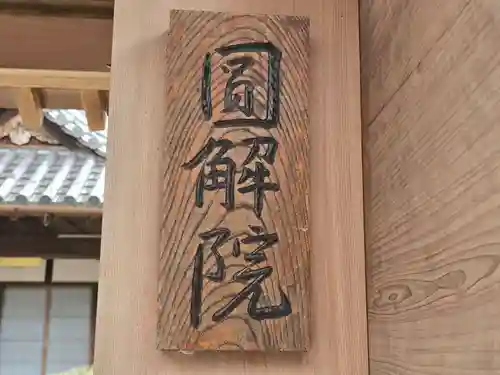 圓解院